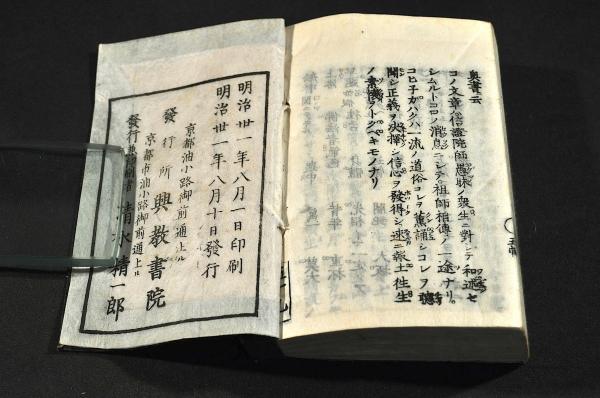 奥書云
コノ文章ハ信證院師愚昧ノ衆生ニ對シテ和述セ
シムルトコロノ消息ニシテ祖師相傳ノ一途ナリ
コヒネガハクハ一流ノ道俗コレヲ諷誦シコレヲ聽
聞シ正義ヲ決擇シ信心ヲ發得シ速ニ報土往生
ノ素懷ヲトグベキモノナリ
明治卅一年八月一日印刷
明治卅一年八月十日發行
京都油小路御前通上ル
發行所 興教書院
京都市油小路御前通上ル
發行 清水精一郎